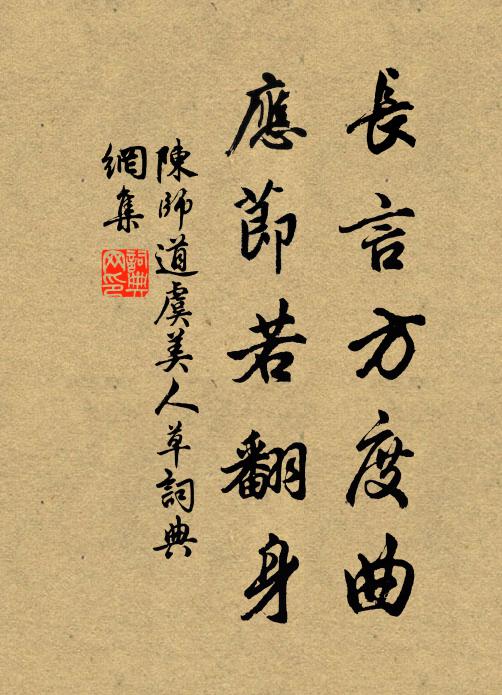 長言方度曲
應節若翻身
陳師道虞美人草詞典
網集
詞典
网印